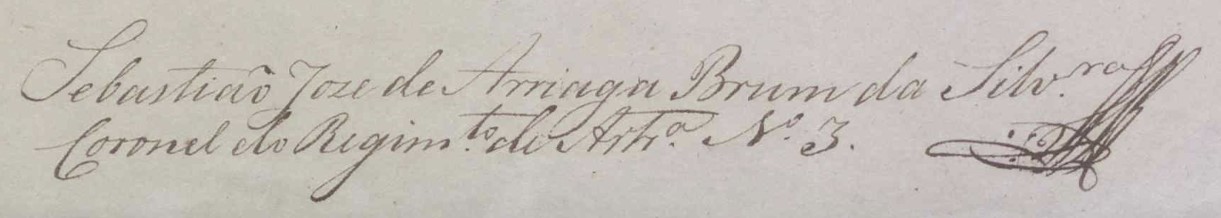 Sebastiaõ Joze de Arriaga Brum da Silv.ra
Coronel do Regim.to de Artr.a N.o 3.